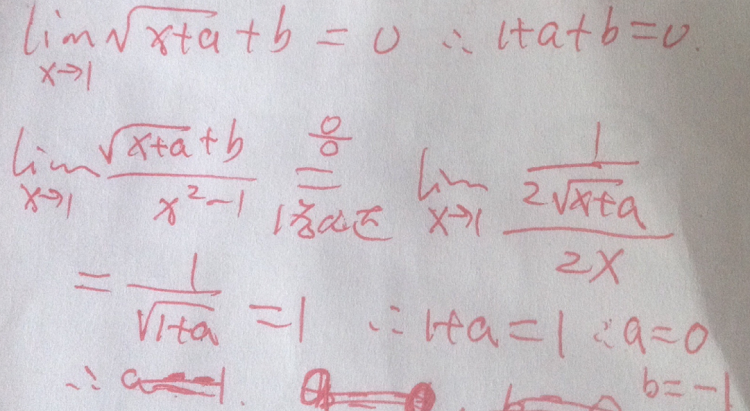 lim x→1 √(x+a) + b = 0 ∴ 1+a+b=0.
lim x→1 (√(x+a) + b)/(x²-1) 0/0 = lim x→1 (1/(2√(x+a)))/(2x)
= 1/√(1+a) = 1 ∴ 1+a=1 ∴ a=0
∴ b=-1